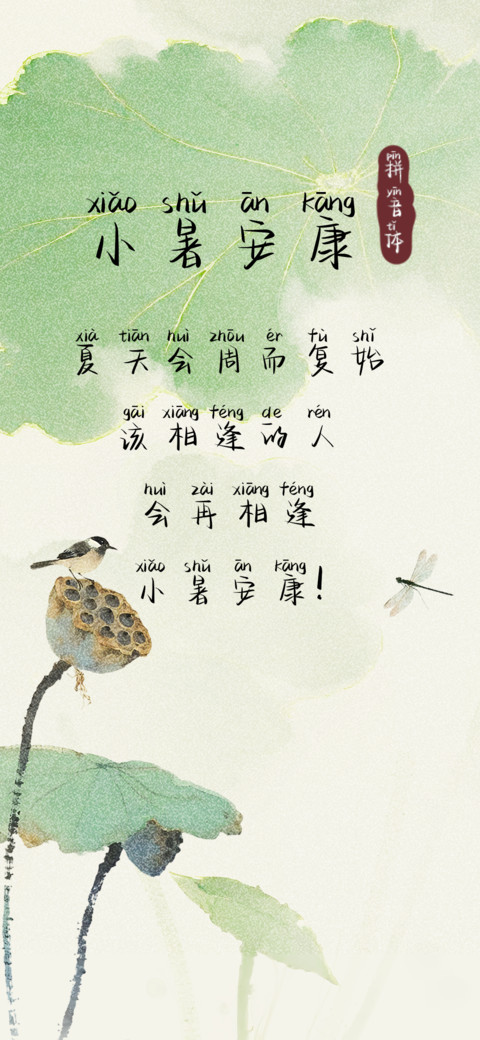 xiǎo shǔ ān kāng
小暑安康
pīn yīn tǐ
拼音体
xià tiān huì zhōu ér fù shǐ
夏天会周而复始
gāi xiāng féng de rén
该相逢的人
huì zài xiāng féng
会再相逢
xiǎo shǔ ān kāng
小暑安康!